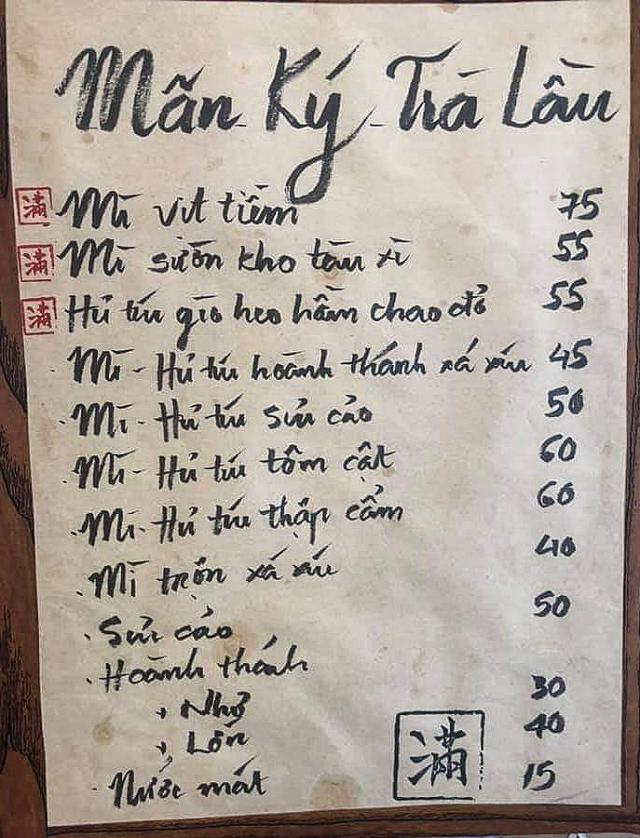 Mãn Ký Trà Lầu
滿 Mì vịt tiềm 75
滿 Mì sườn kho tàu xì 55
滿 Hủ tíu giò heo hầm chao đỏ 55
· Mì - Hủ tíu hoành thánh xá xíu 45
· Mì - Hủ tíu sủi cảo 50
· Mì - Hủ tíu tôm cật 60
· Mì - Hủ tíu thập cẩm 60
· Mì trộn xá xíu 40
· Sủi cảo 50
· Hoành thánh
+ Nhỏ 30
+ Lớn 40
· Nước mát 15
滿